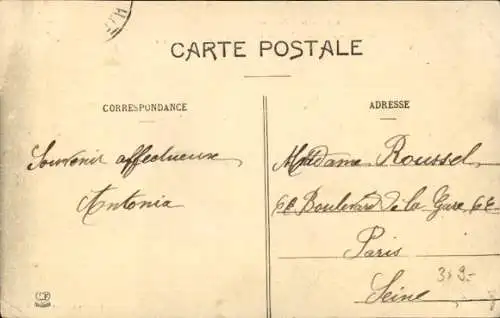 CARTE POSTALE
CORRESPONDANCE
ADRESSE
Souvenir affectueux
Antonia
Madame Roussel
Boulevard de la Gare
Paris
Seine